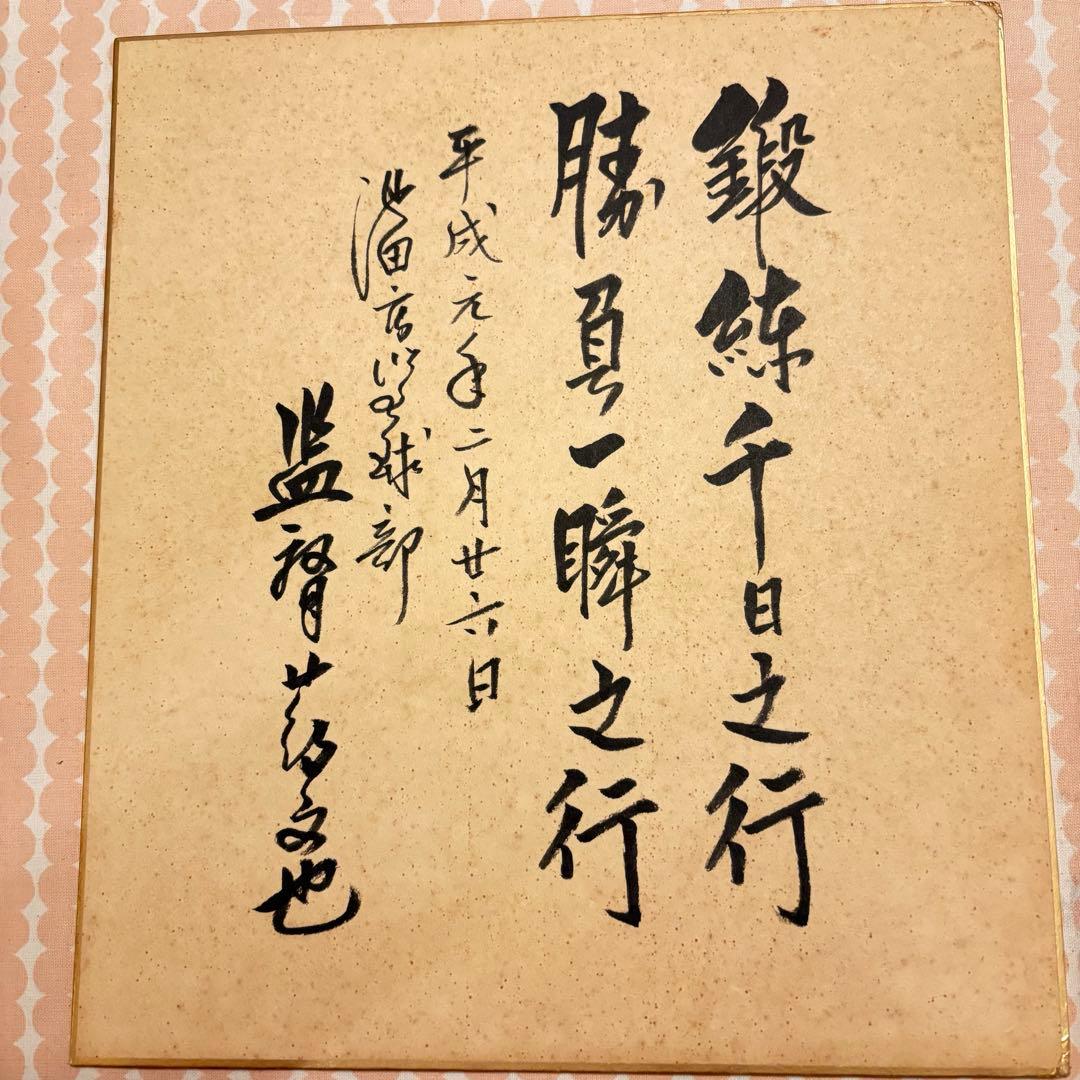 鍛練千日之行
勝負一瞬之行
平成元年二月廿六日
池田高校野球部
監督 蔦文也